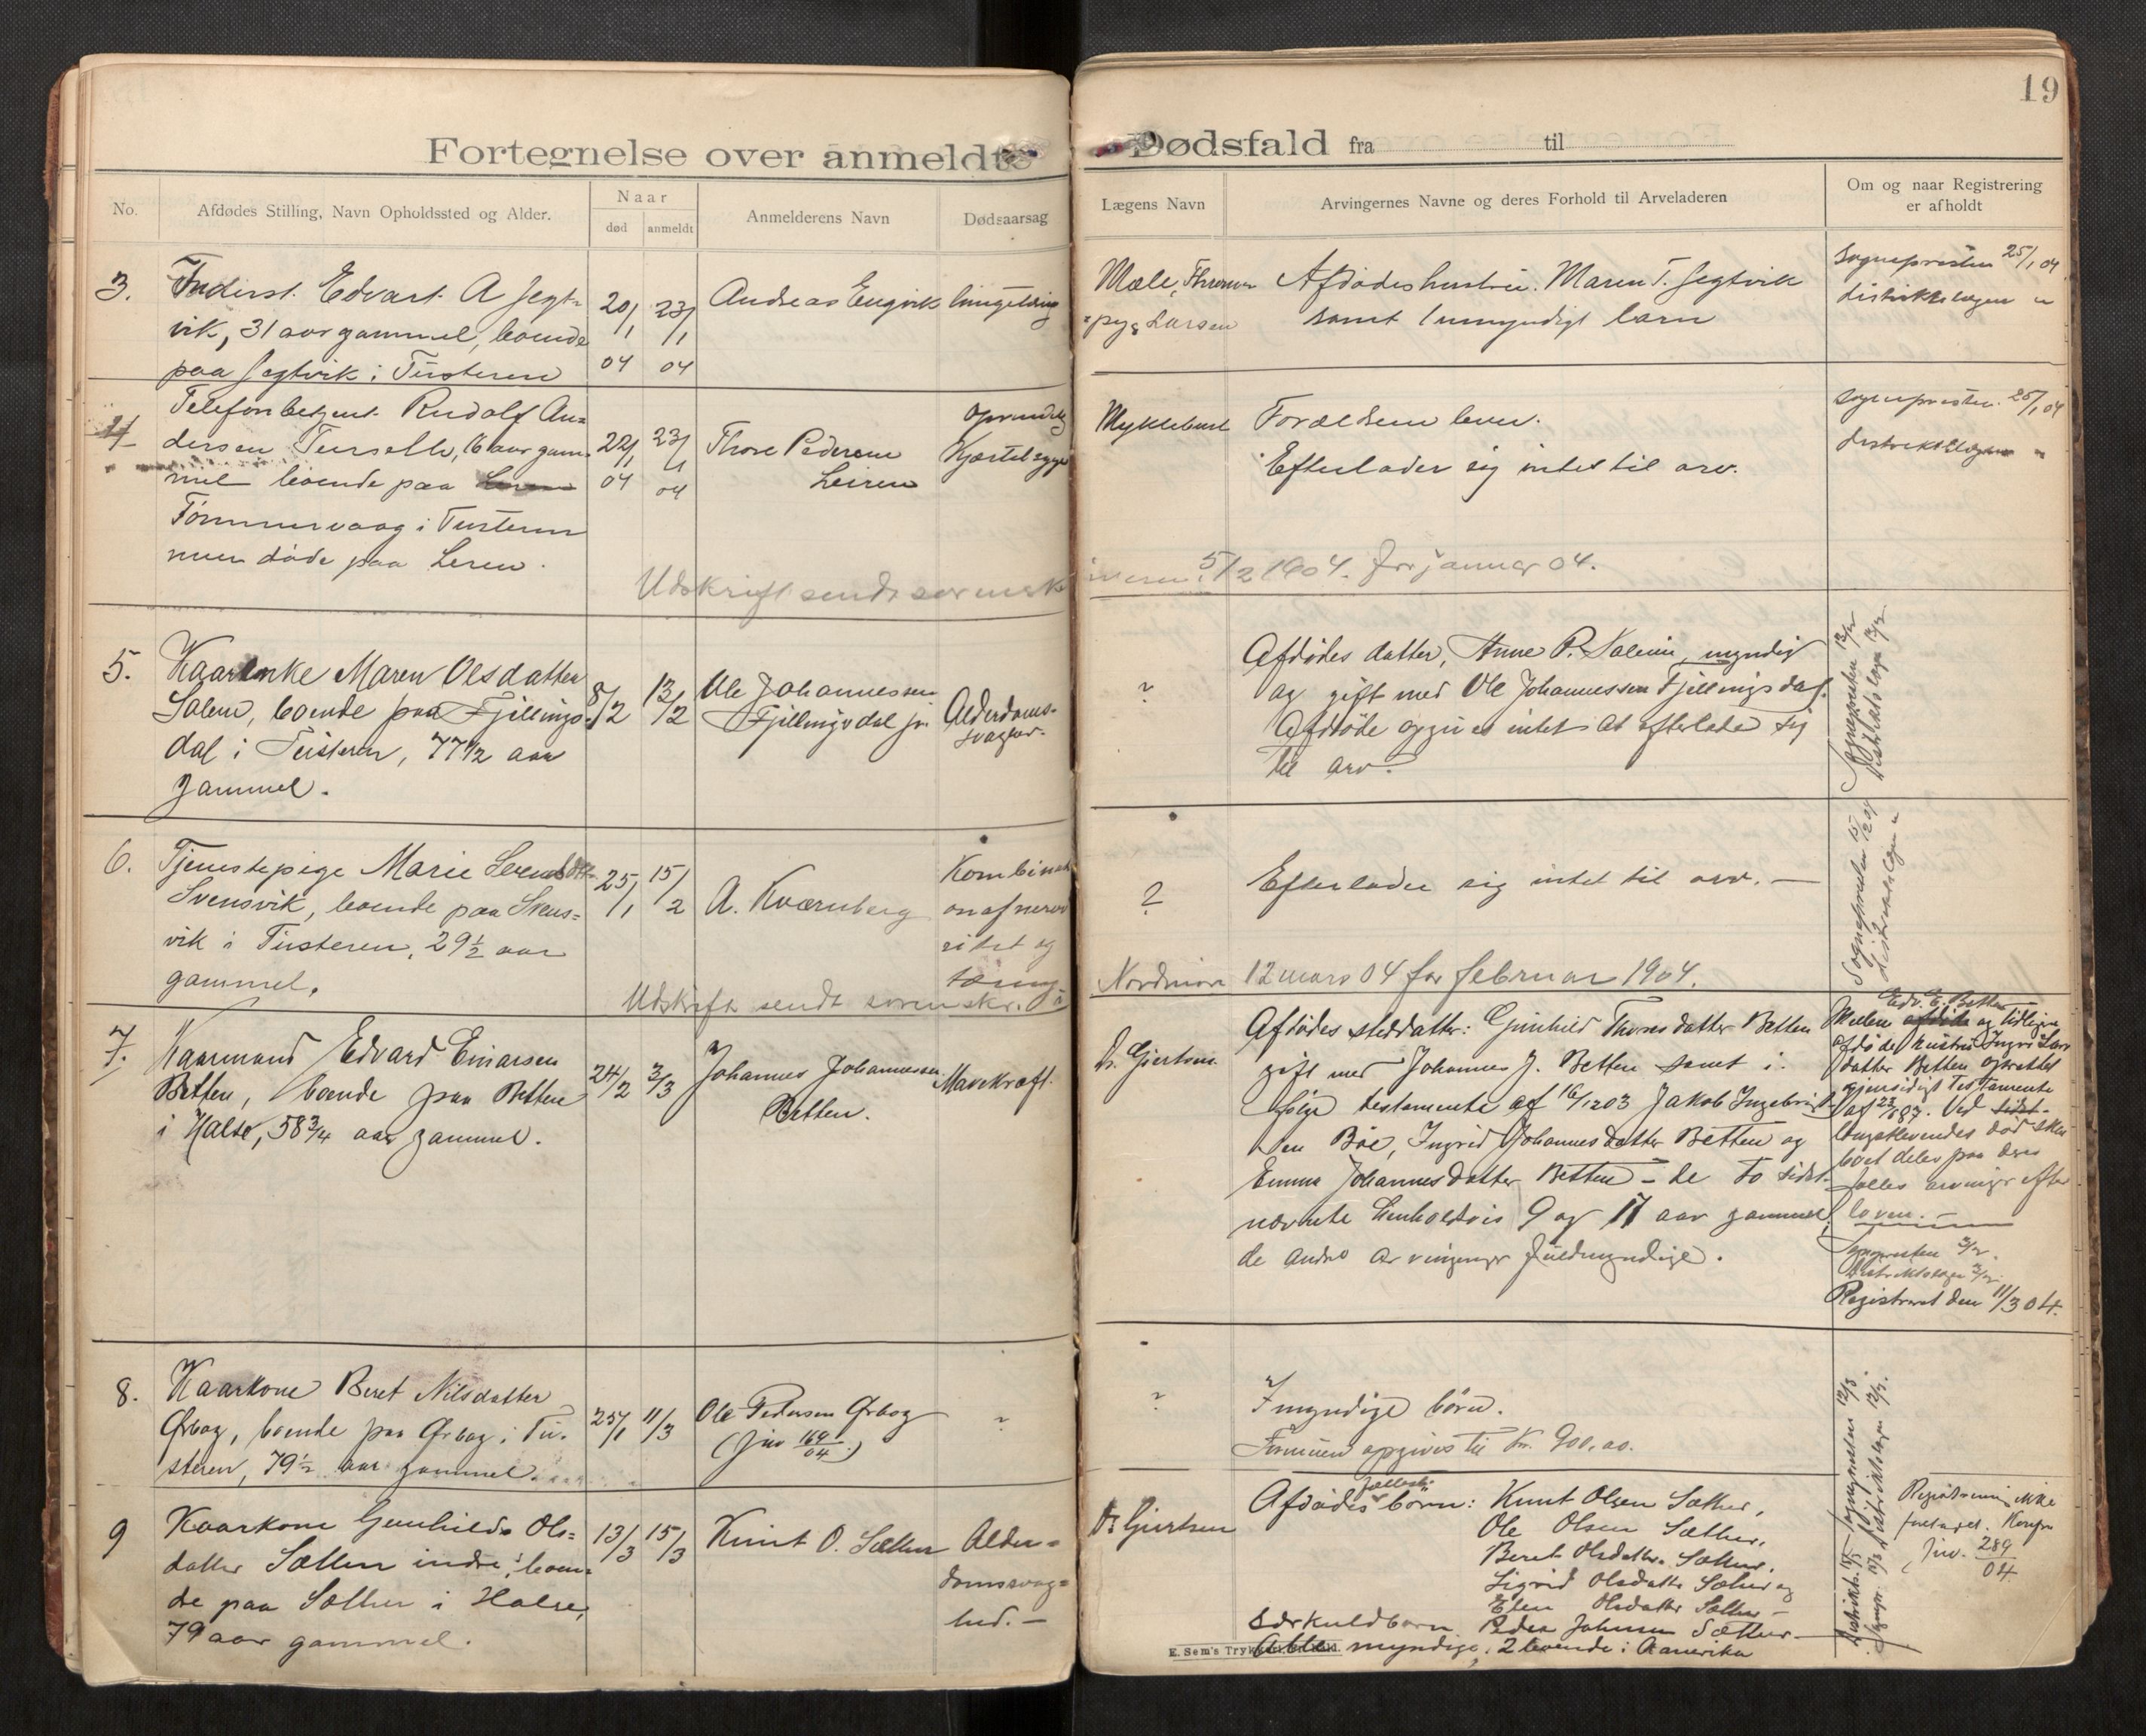 19
Fortegnelse over anmeldte Dødsfald fra til
No.
Afdødes Stilling, Navn Opholdssted og Alder.
Naar
død
anmeldt
Anmelderens Navn
Dødsaarsag
Lægens Navn
Arvingernes Navne og deres Forhold til Arveladeren
Om og naar Registrering
er afholdt
3.
Inderst. Edvart A Jegt=
vik, 31 aar gammel, boende
paa Jegtvik i Tusteren
20/1
04
23/1
04
Andreas Engvik
Mæle,
Larsen
Afdødes hustru. Maren T. Jegtvik
samt 1 umyndigt barn
Sognepresten 25/1 04
distriktslægen "
4
Telefonbetjent Rudolf An=
dersen 16 aar gam=
mel boende paa
Tømmervaag i Tusteren
men døde paa Leren.
22/1
04
23/1
04
Thore Pedersen
Leiren
Myklebust
Forældrene lever.
Efterlader sig intet til arv.
sognepresten 25/1 04
distriktslægen "
Udskrift sendt sorensk
5/2 1904. for januar 04.
5.
Kaarenke Maren Olsdatter
Salen, boende paa Fjellings=
dal i Tusteren, 77 1/2 aar
gammel.
8/2
13/2
Ole Johannessen
Fjellingsdal jr.
Alderdoms-
svaghed.
?
Afdødes datter, Anne P. Salen, myndig
og gift med Ole Johannessen Fjellingsdal.
Afdøde opgives intet at efterlade sig
til arv.
Sognepresten 13/2
distriktslægen 13/2
6.
Tjenestepige Marie
Svensvik, boende paa Svens=
vik i Tusteren, 29 1/2 aar
gammel.
25/1
15/2
A. Kvernberg
Kombinati
on af nerv
og
?
Efterlader sig intet til arv. —
Sognepresten 15/2 04
distriktslægen "
Udskrift sendt sorenskr. i
Nordmøre 12 mars 04 for februar 1904.
7.
Kaarmand Edvard Einarsen
Betten, boende paa Betten
i Halse, 58 3/4 aar gammel.
24/2
3/3
Johannes Johannessen
Betten.
Mavekræft.
Dr. Gjertsen
Afdødes steddatter: Gunhild Thoresdatter Betten
gift med Johannes J. Betten samt i
følge testamente af 16/12 03 Jakob Ingebrigt=
sen Bøe, Ingrid Johannesdatter Betten og
Emma Johannesdatter Betten – de to sidst-
nævnte henholdsvis 9 og 17 aar gammel,
de andre arvinger fuldmyndige.
Edv. E. Betten
Mellem afdøde og tidligere
afdøde hustru Ingri Lars
datter Betten oprettet
gjensidigt testamente
af 23/ 87. Ved sidst-
længstlevendes død skal
boet deles paa deres
fælles arvinger efter
loven. —
Sognepresten 3/3.
Distriktslægen 3/3.
Registreret den 11/3 04.
8.
Kaarkone Beret Nilsdatter
Ørbog, boende paa Ørbog i Tu-
steren, 79 1/2 aar gammel.
25/1
11/3
Ole Pedersen Ørbog
(Jnr 169/04.)
?
?
7 myndige børn.
Formuen opgives til Kr. 900,00.
Sognepresten 12/3
Distriktslægen 12/3.
9
Kaarkone Gunhild Ols=
datter Sætter indre, boen=
de paa Sæther i Halse,
79 aar gammel.
13/3
15/3
Knut O. Sæther
Alder=
domssvag=
hed. —
Dr Gjertsen
Afdødes fælles børn: Knut Olsen Sæther,
Ole Olsen Sæther,
Beret Olsdatter Sæther,
Sigrid Olsdatter Sæther og
Elen Olsdatter Sæther –
særkuldbarn. Peder Johnsen Sæther –
Alle myndige, 2 boende i Amerika
Distriktsl. 15/3
Sognepr. 15/3
Registrering ikke
foretaget. Konfr.
Jnr. 289/04